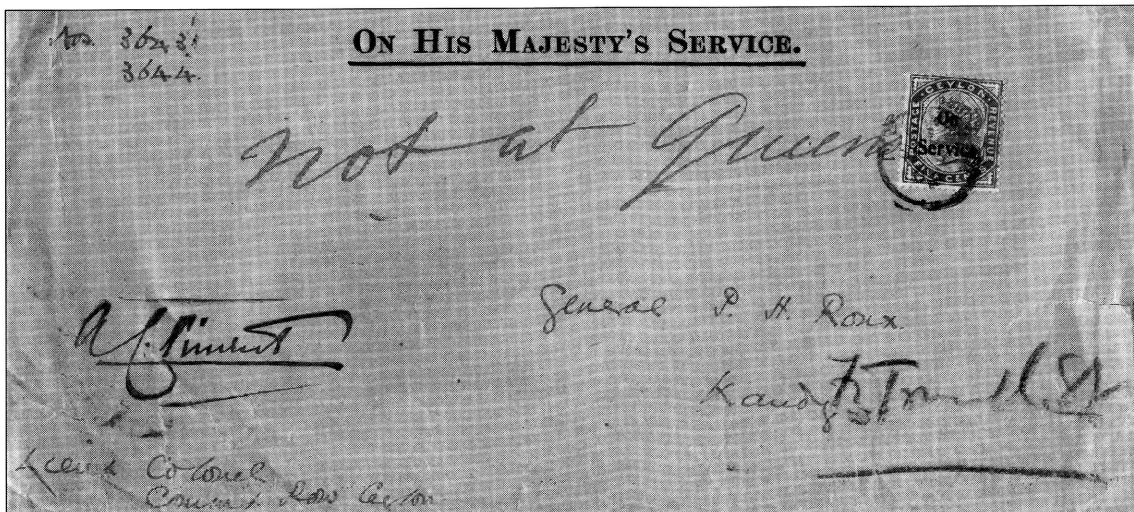 Nos. 3643
3644.
ON HIS MAJESTY'S SERVICE.
CEYLON
POSTAGE
On
Service
not at Queens
General P. H. Roux
A. C. Vincent
Kandy
Lieut Colonel
Ceylon